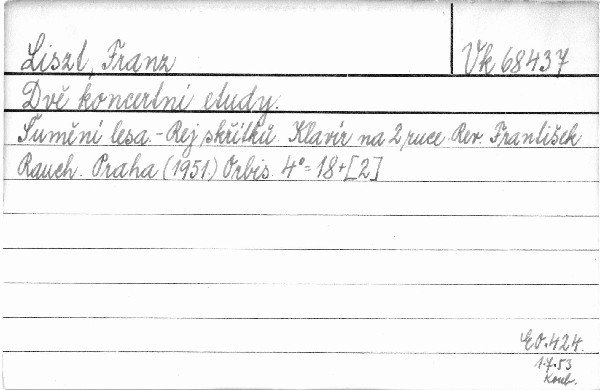 Liszt, Franz
Vk 68437
Dvě koncertní etudy.
Šumění lesa.-Rej skřítků. Klavír na 2 ruce. Rev. František
Rauch. Praha (1951.) Orbis. 4°= 18+[2]
EO.424.
1.7.53
Koub.